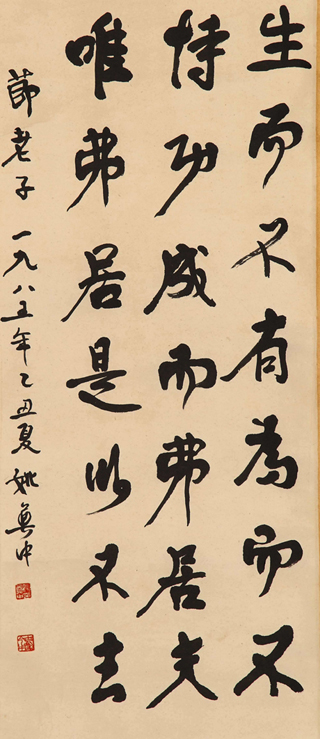 生而不有為而不
恃功成而弗居夫
唯弗居是以不去
節老子一九八五年乙丑夏姚奠中